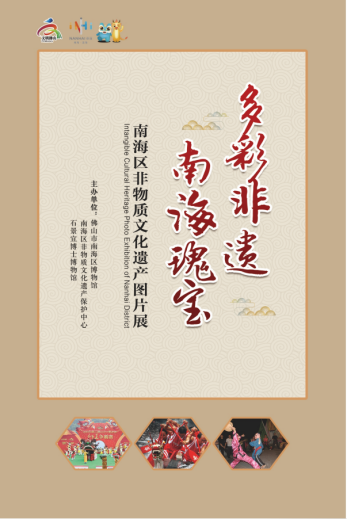 多彩非遗
南海瑰宝
南海区非物质文化遗产图片展
Intangible Cultural Heritage Photo Exhibition of Nanhai District
主办单位：佛山市南海区博物馆
南海区非物质文化遗产保护中心
石景宜博士博物馆